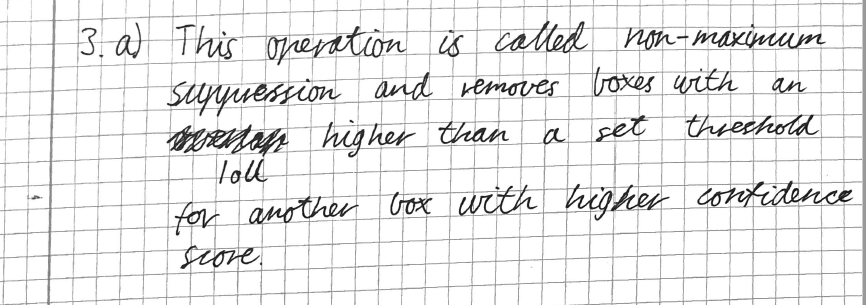 3. a) This operation is called non-maximum
suppression and removes boxes with an
higher than a set threshold
IoU
for another box with higher confidence
score.